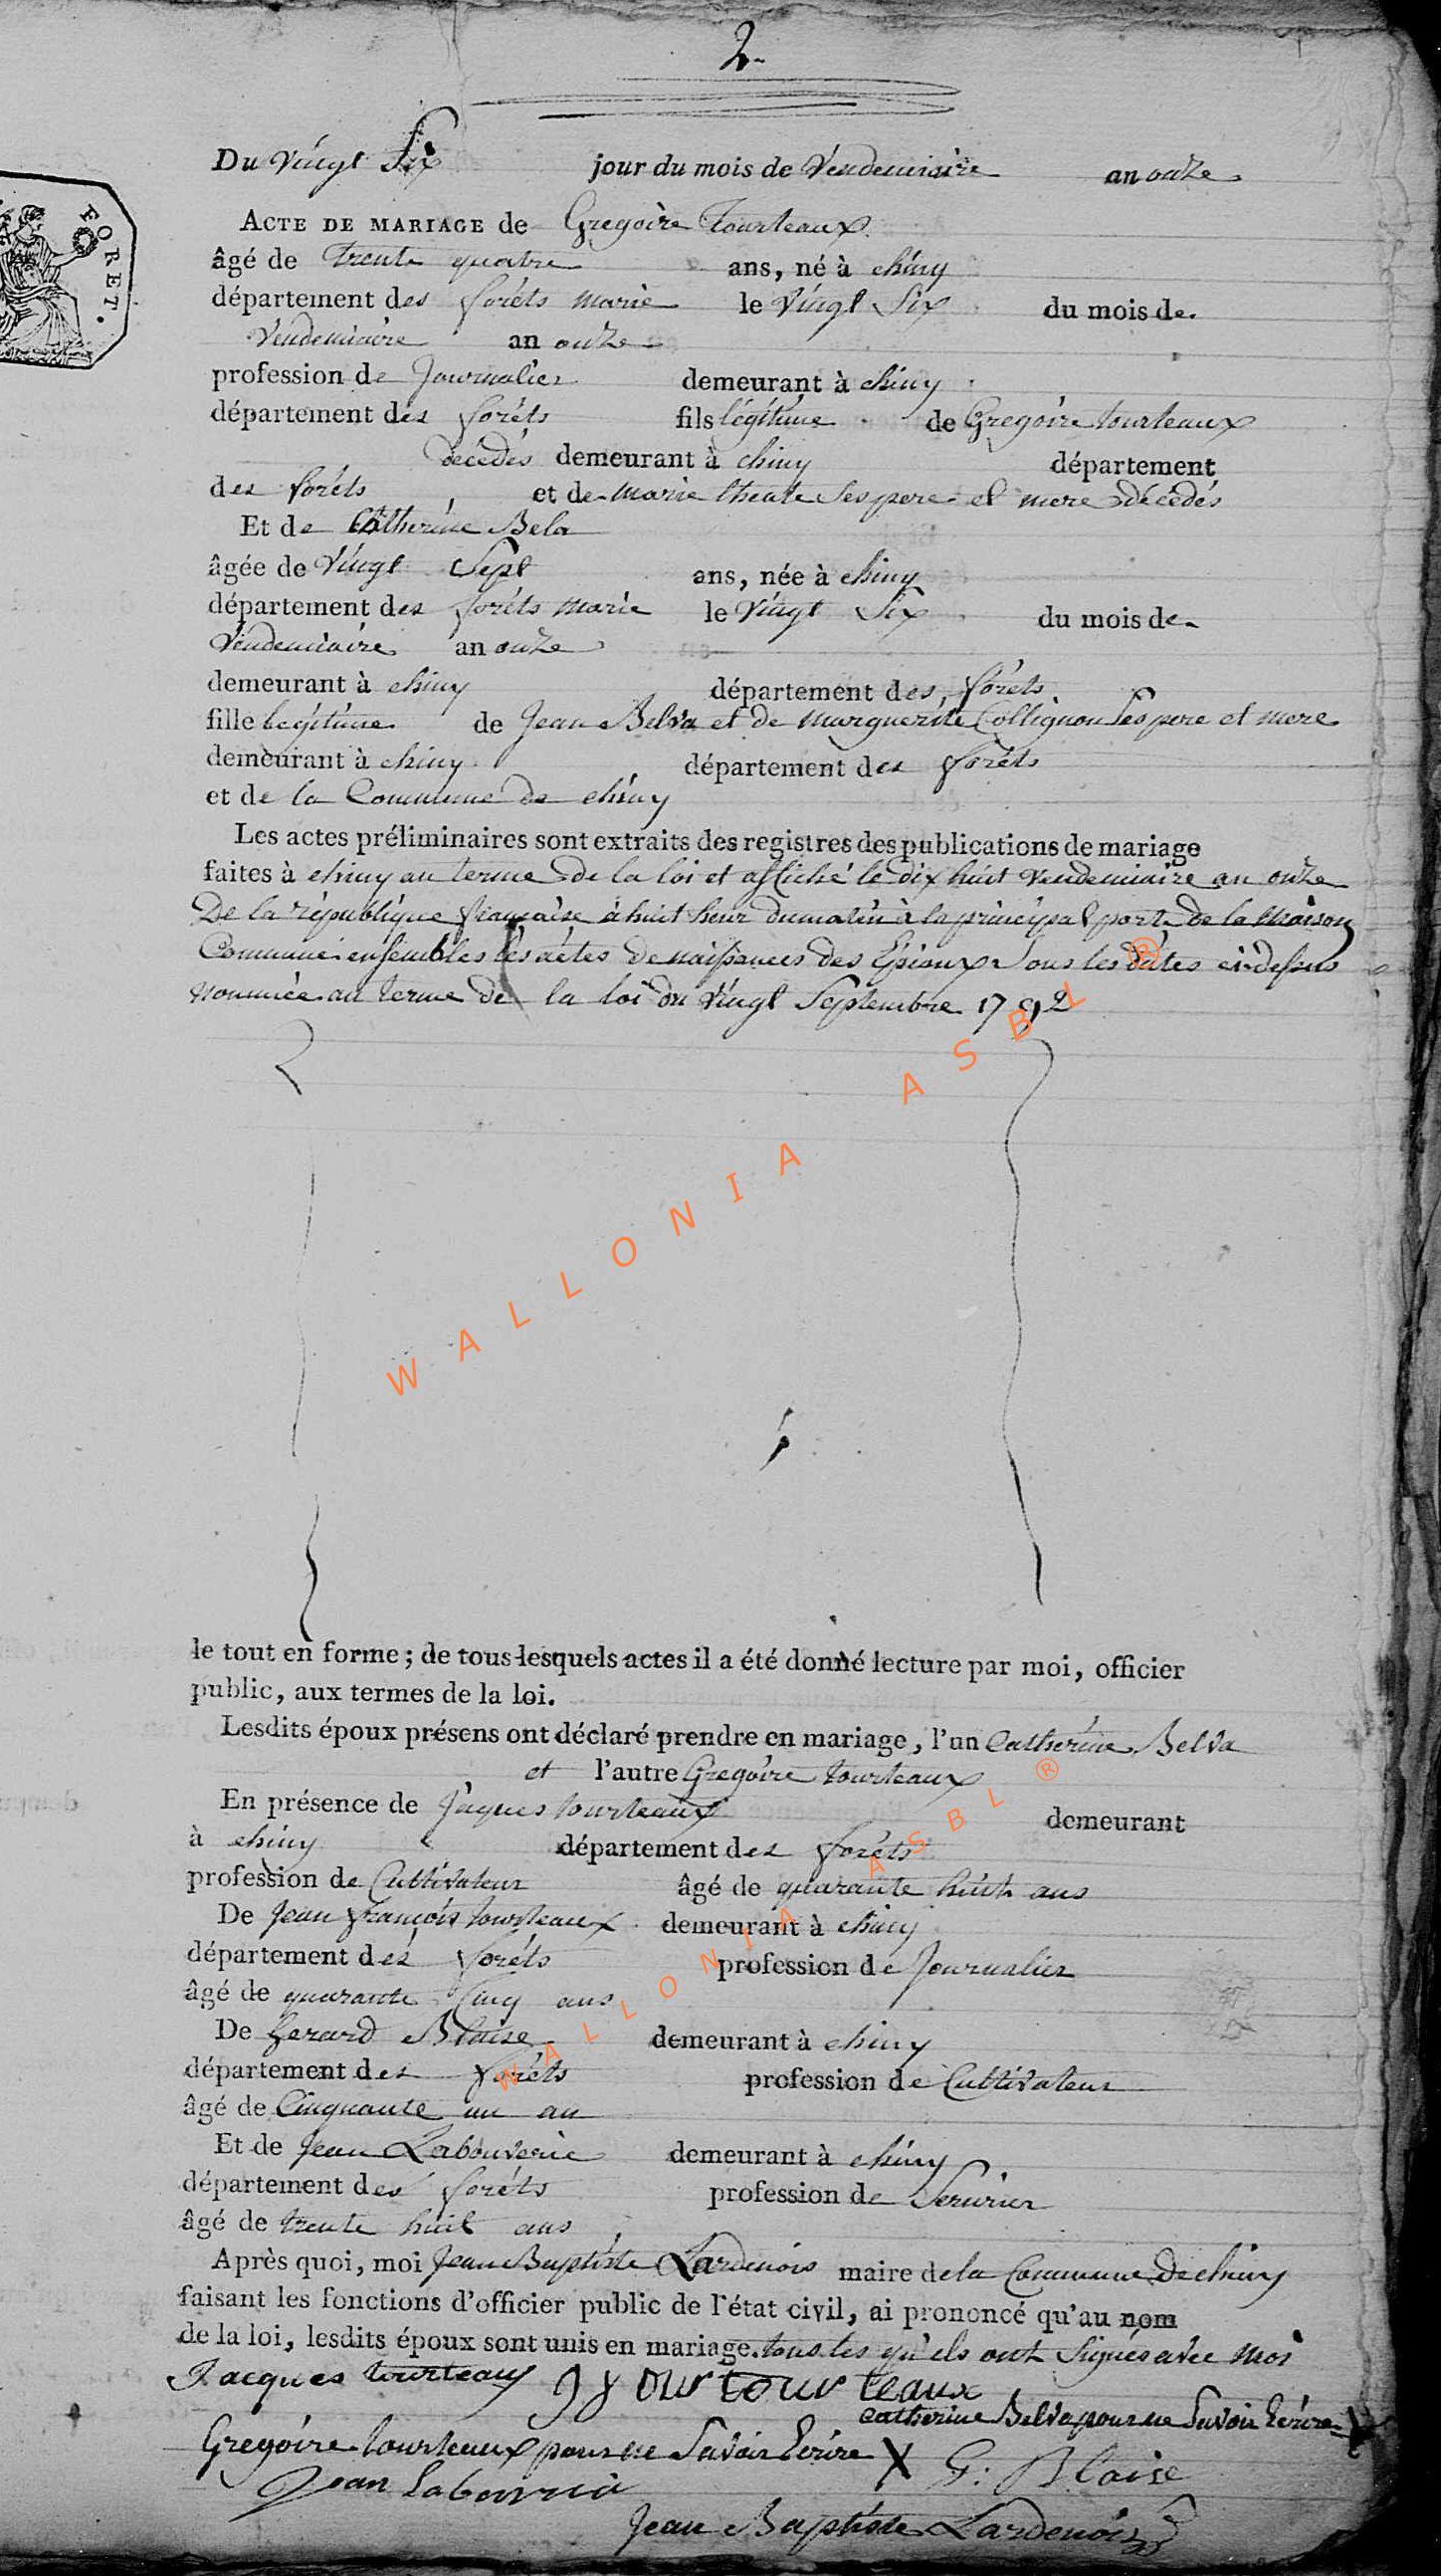 2.
FORET.
Du vingt Six jour du mois de vendemiaire an onze
ACTE DE MARIAGE de Gregoire Tourteaux
âgé de trente quatre ans, né à chiny
département des foréts marie le vingt Six du mois de
vendemiaire an onze
profession de Journalier demeurant à chiny
département des foréts fils légitime de Gregoire tourteaux
décédés demeurant à chiny département
des foréts et de marie theate Ses pere et mere décédés
Et de Catherine Bela
âgée de vingt Sept ans, née à chiny
département des foréts marie le vingt Six du mois de
vendemiaire an onze
demeurant à chiny département des foréts
fille legitime de Jean Belva et de marguerite Collignon Ses pere et mere
demeurant à chiny département des foréts
et de la Commune de chiny
Les actes préliminaires sont extraits des registres des publications de mariage
faites à chiny au terme de la loi et affiché le dix huit vendemiaire an onze
De la république française à huit heur du matin à la principal porte de la maison
Commune ensembles les actes de naissances des Epioux Sous les dates ci dessus
nommée au terme de la loi du vingt Septembre 1792
le tout en forme ; de tous lesquels actes il a été donné lecture par moi, officier
public, aux termes de la loi.
Lesdits époux présens ont déclaré prendre en mariage, l'un Catherine Belva
et l'autre Gregoire tourteaux
En présence de Jaques tourteaux demeurant
à chiny département des foréts
profession de Cultivateur âgé de quarante huit ans
De Jean françois tourteaux demeurant à chiny
département des foréts profession de Journalier
âgé de quarante Cinq ans
De Gerard Blaise demeurant à chiny
département des foréts profession de Cultivateur
âgé de Cinquante un an
Et de Jean Labouverie demeurant à chiny
département des foréts profession de Serurier
âgé de trente huit ans
Après quoi, moi Jean Baptiste Lardenois maire de la Commune De chiny
faisant les fonctions d'officier public de l'état civil, ai prononcé qu'au nom
de la loi, lesdits époux sont unis en mariage. tous les qu'els ont Signés avec moi
Jacques tourteaux tourteaux
Catherine Belva pour ne Savoir Ecrire X
Gregoire tourteaux pour ne Savoir Ecrire X G: Blaise
Jean Labouverie
Jean Baptiste Lardenois
WALLONIA ASBL ®
WALLONIA ASBL ®